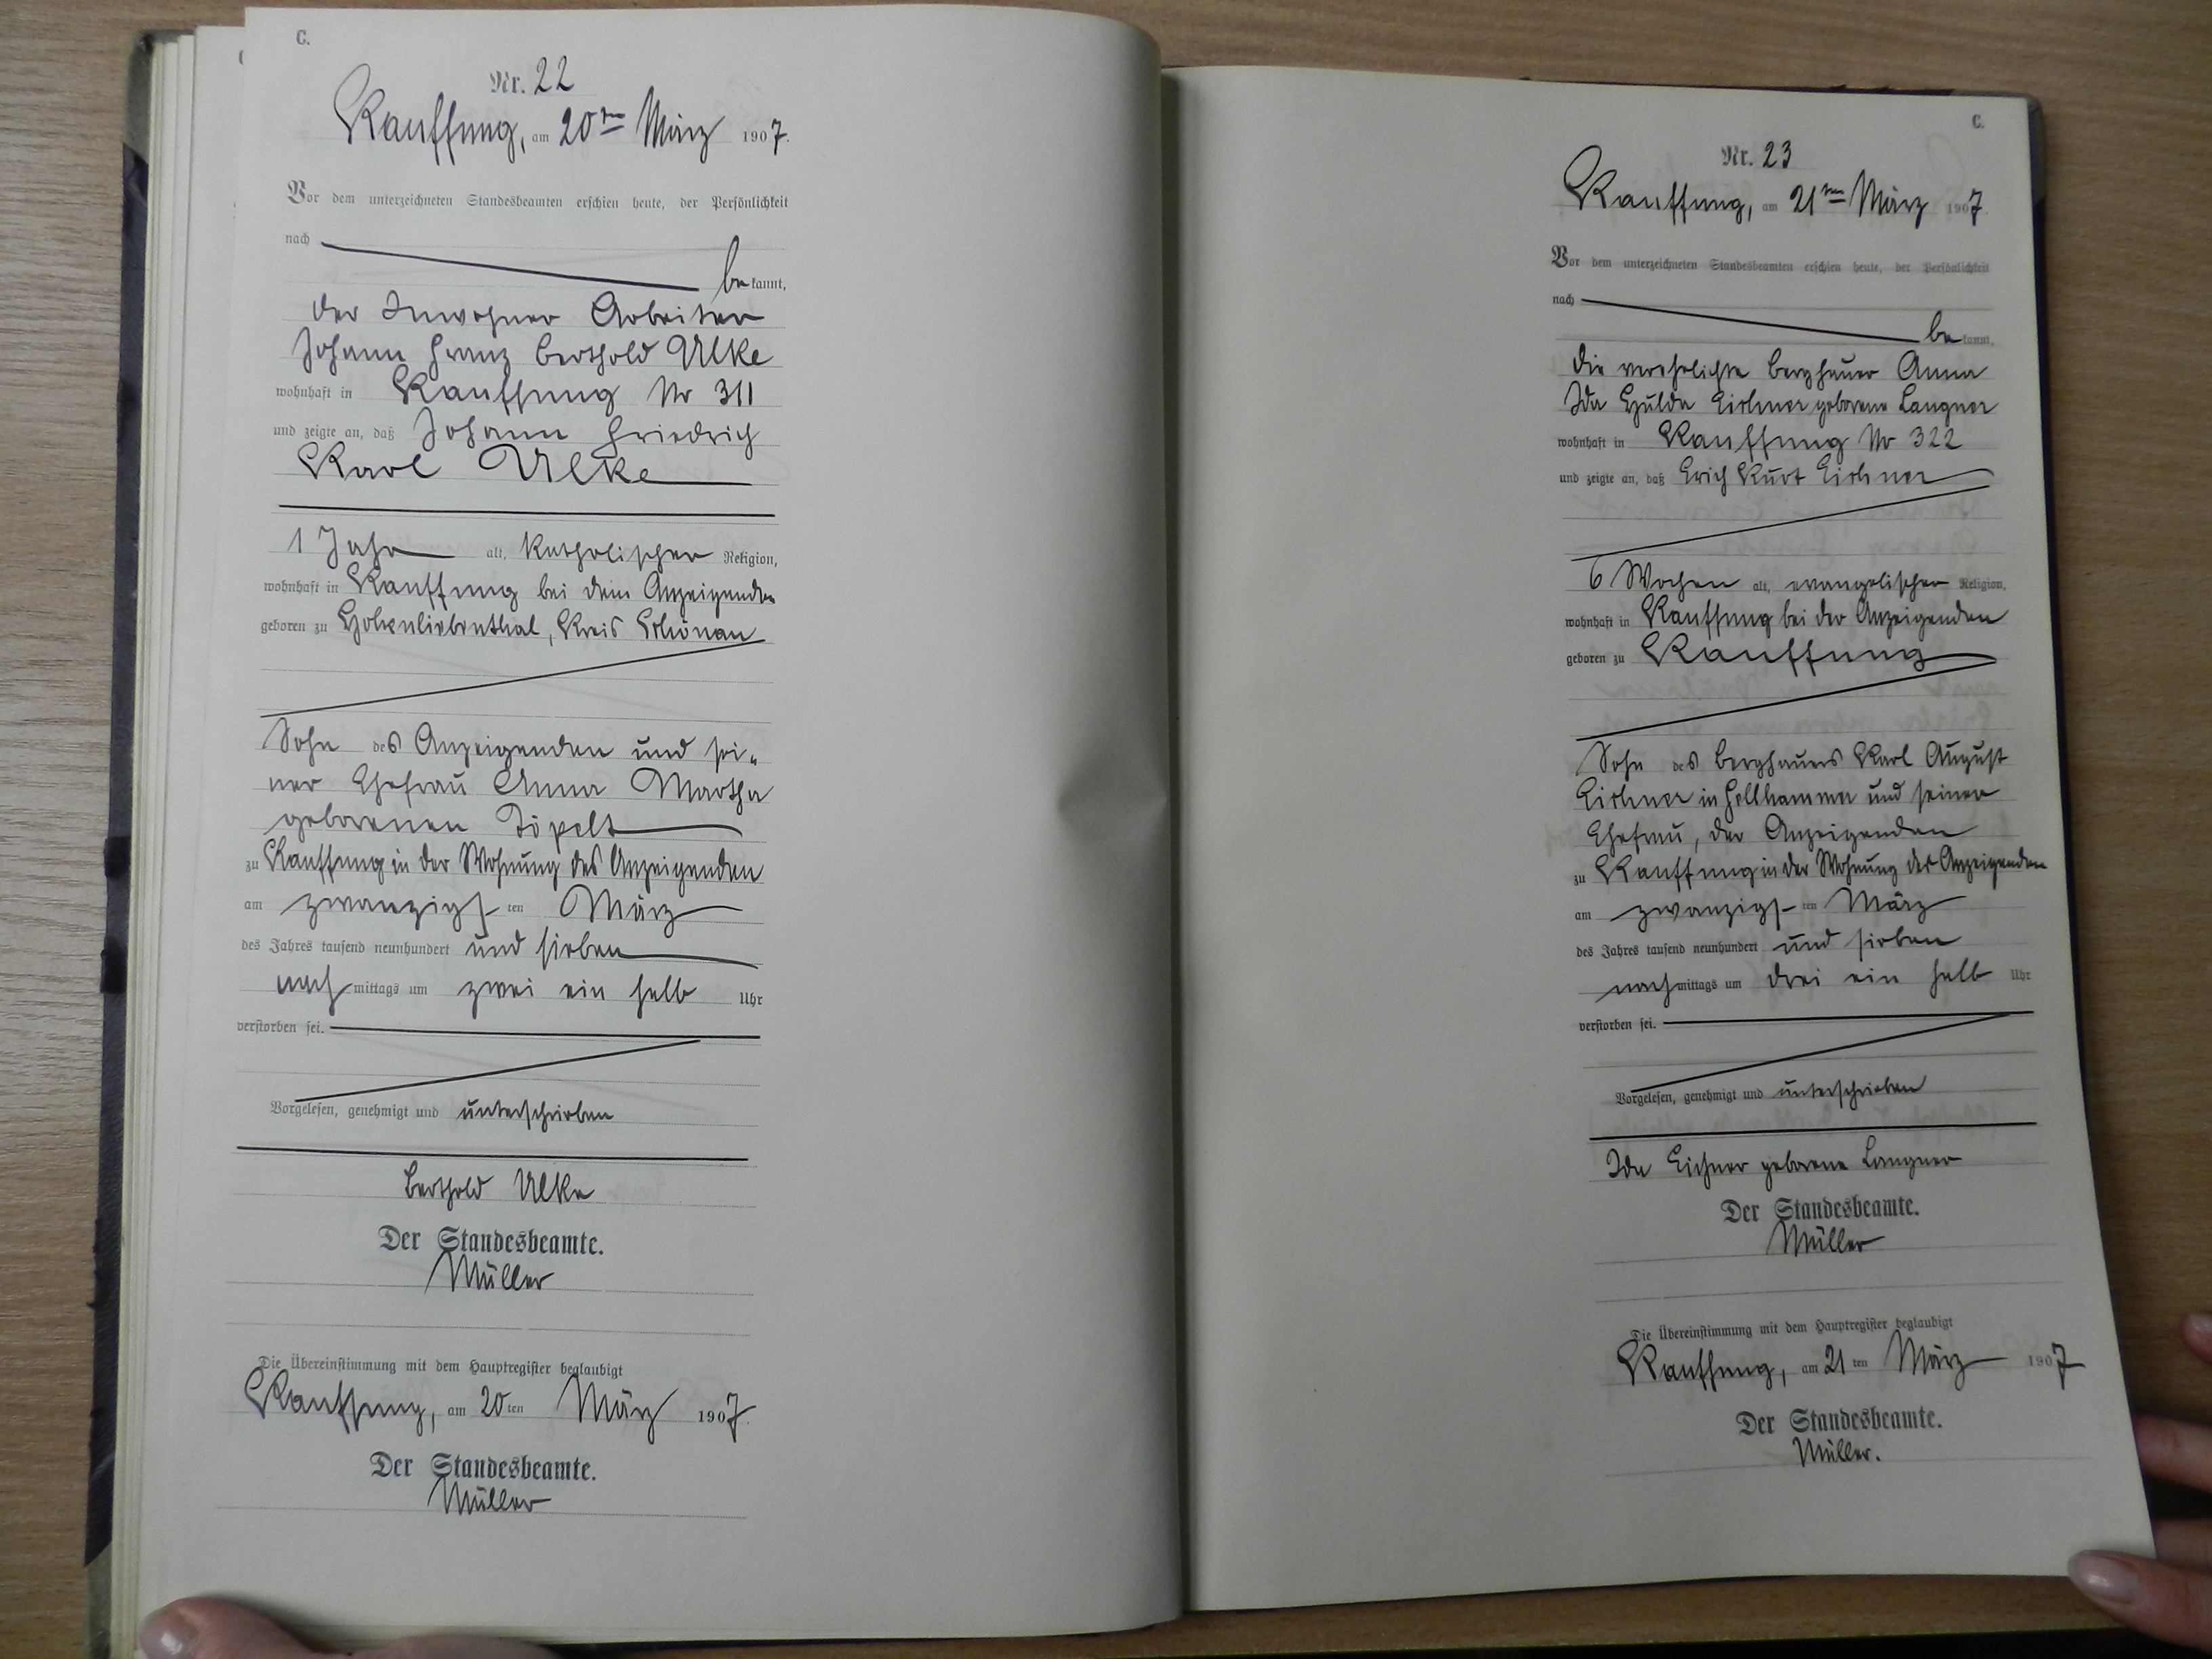 C.
Nr. 22
Kauffung, am 20ten März 1907.
Vor dem unterzeichneten Standesbeamten erschien heute, der Persönlichkeit
nach
bekannt,
der Inwohner Arbeiter
Johann Franz Berthold Ulke
wohnhaft in Kauffung Nr 311
und zeigte an, daß Johann Friedrich
Karl Ulke
1 Jahr alt, katholischer Religion,
wohnhaft in Kauffung bei dem Anzeigenden
geboren zu Hohenliebenthal, Kreis Schönau
Sohn des Anzeigenden und sei-
ner Ehefrau Anna Martha
geborenen Töpelt
zu Kauffung in der Wohnung des Anzeigenden
am zwanzigsten März
des Jahres tausend neunhundert und sieben
nachmittags um zwei ein halb Uhr
verstorben sei.
Vorgelesen, genehmigt und unterschrieben
Berthold Ulke
Der Standesbeamte.
Müller
Die Übereinstimmung mit dem Hauptregister beglaubigt
Kauffung, am 20ten März 1907.
Der Standesbeamte.
Müller
C.
Nr. 23
Kauffung, am 21ten März 1907
Vor dem unterzeichneten Standesbeamten erschien heute, der Persönlichkeit
nach
bekannt,
die verehelichte Berghauer Anna
Ida Hulda Eichner geborene Langner
wohnhaft in Kauffung Nr 322
und zeigte an, daß Erich Kurt Eichner
6 Wochen alt, evangelischer Religion,
wohnhaft in Kauffung bei der Anzeigenden
geboren zu Kauffung
Sohn des Berghauers Karl August
Eichner in Hellhammer und seiner
Ehefrau, der Anzeigenden
zu Kauffung in der Wohnung der Anzeigenden
am zwanzigsten März
des Jahres tausend neunhundert und sieben
nachmittags um drei ein halb Uhr
verstorben sei.
Vorgelesen, genehmigt und unterschrieben
Ida Eichner geborene Langner
Der Standesbeamte.
Müller
Die Übereinstimmung mit dem Hauptregister beglaubigt
Kauffung, am 21ten März 1907
Der Standesbeamte.
Müller.